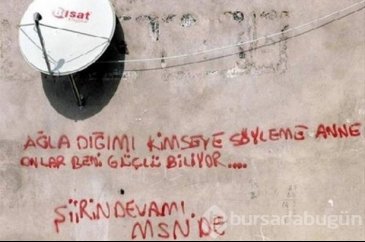 aisat
AĞLA DIĞIMI KİMSEYE SÖYLEME ANNE
ONLAR BENİ GÜÇLÜ BİLİYOR....
ŞİİRİN DEVAMI
MSN'DE
bursadabugün